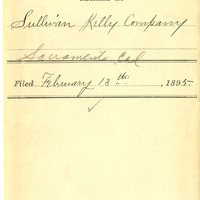 Sullivan Kelly Company
Sacramento Cal
Filed February 13th, 1895.